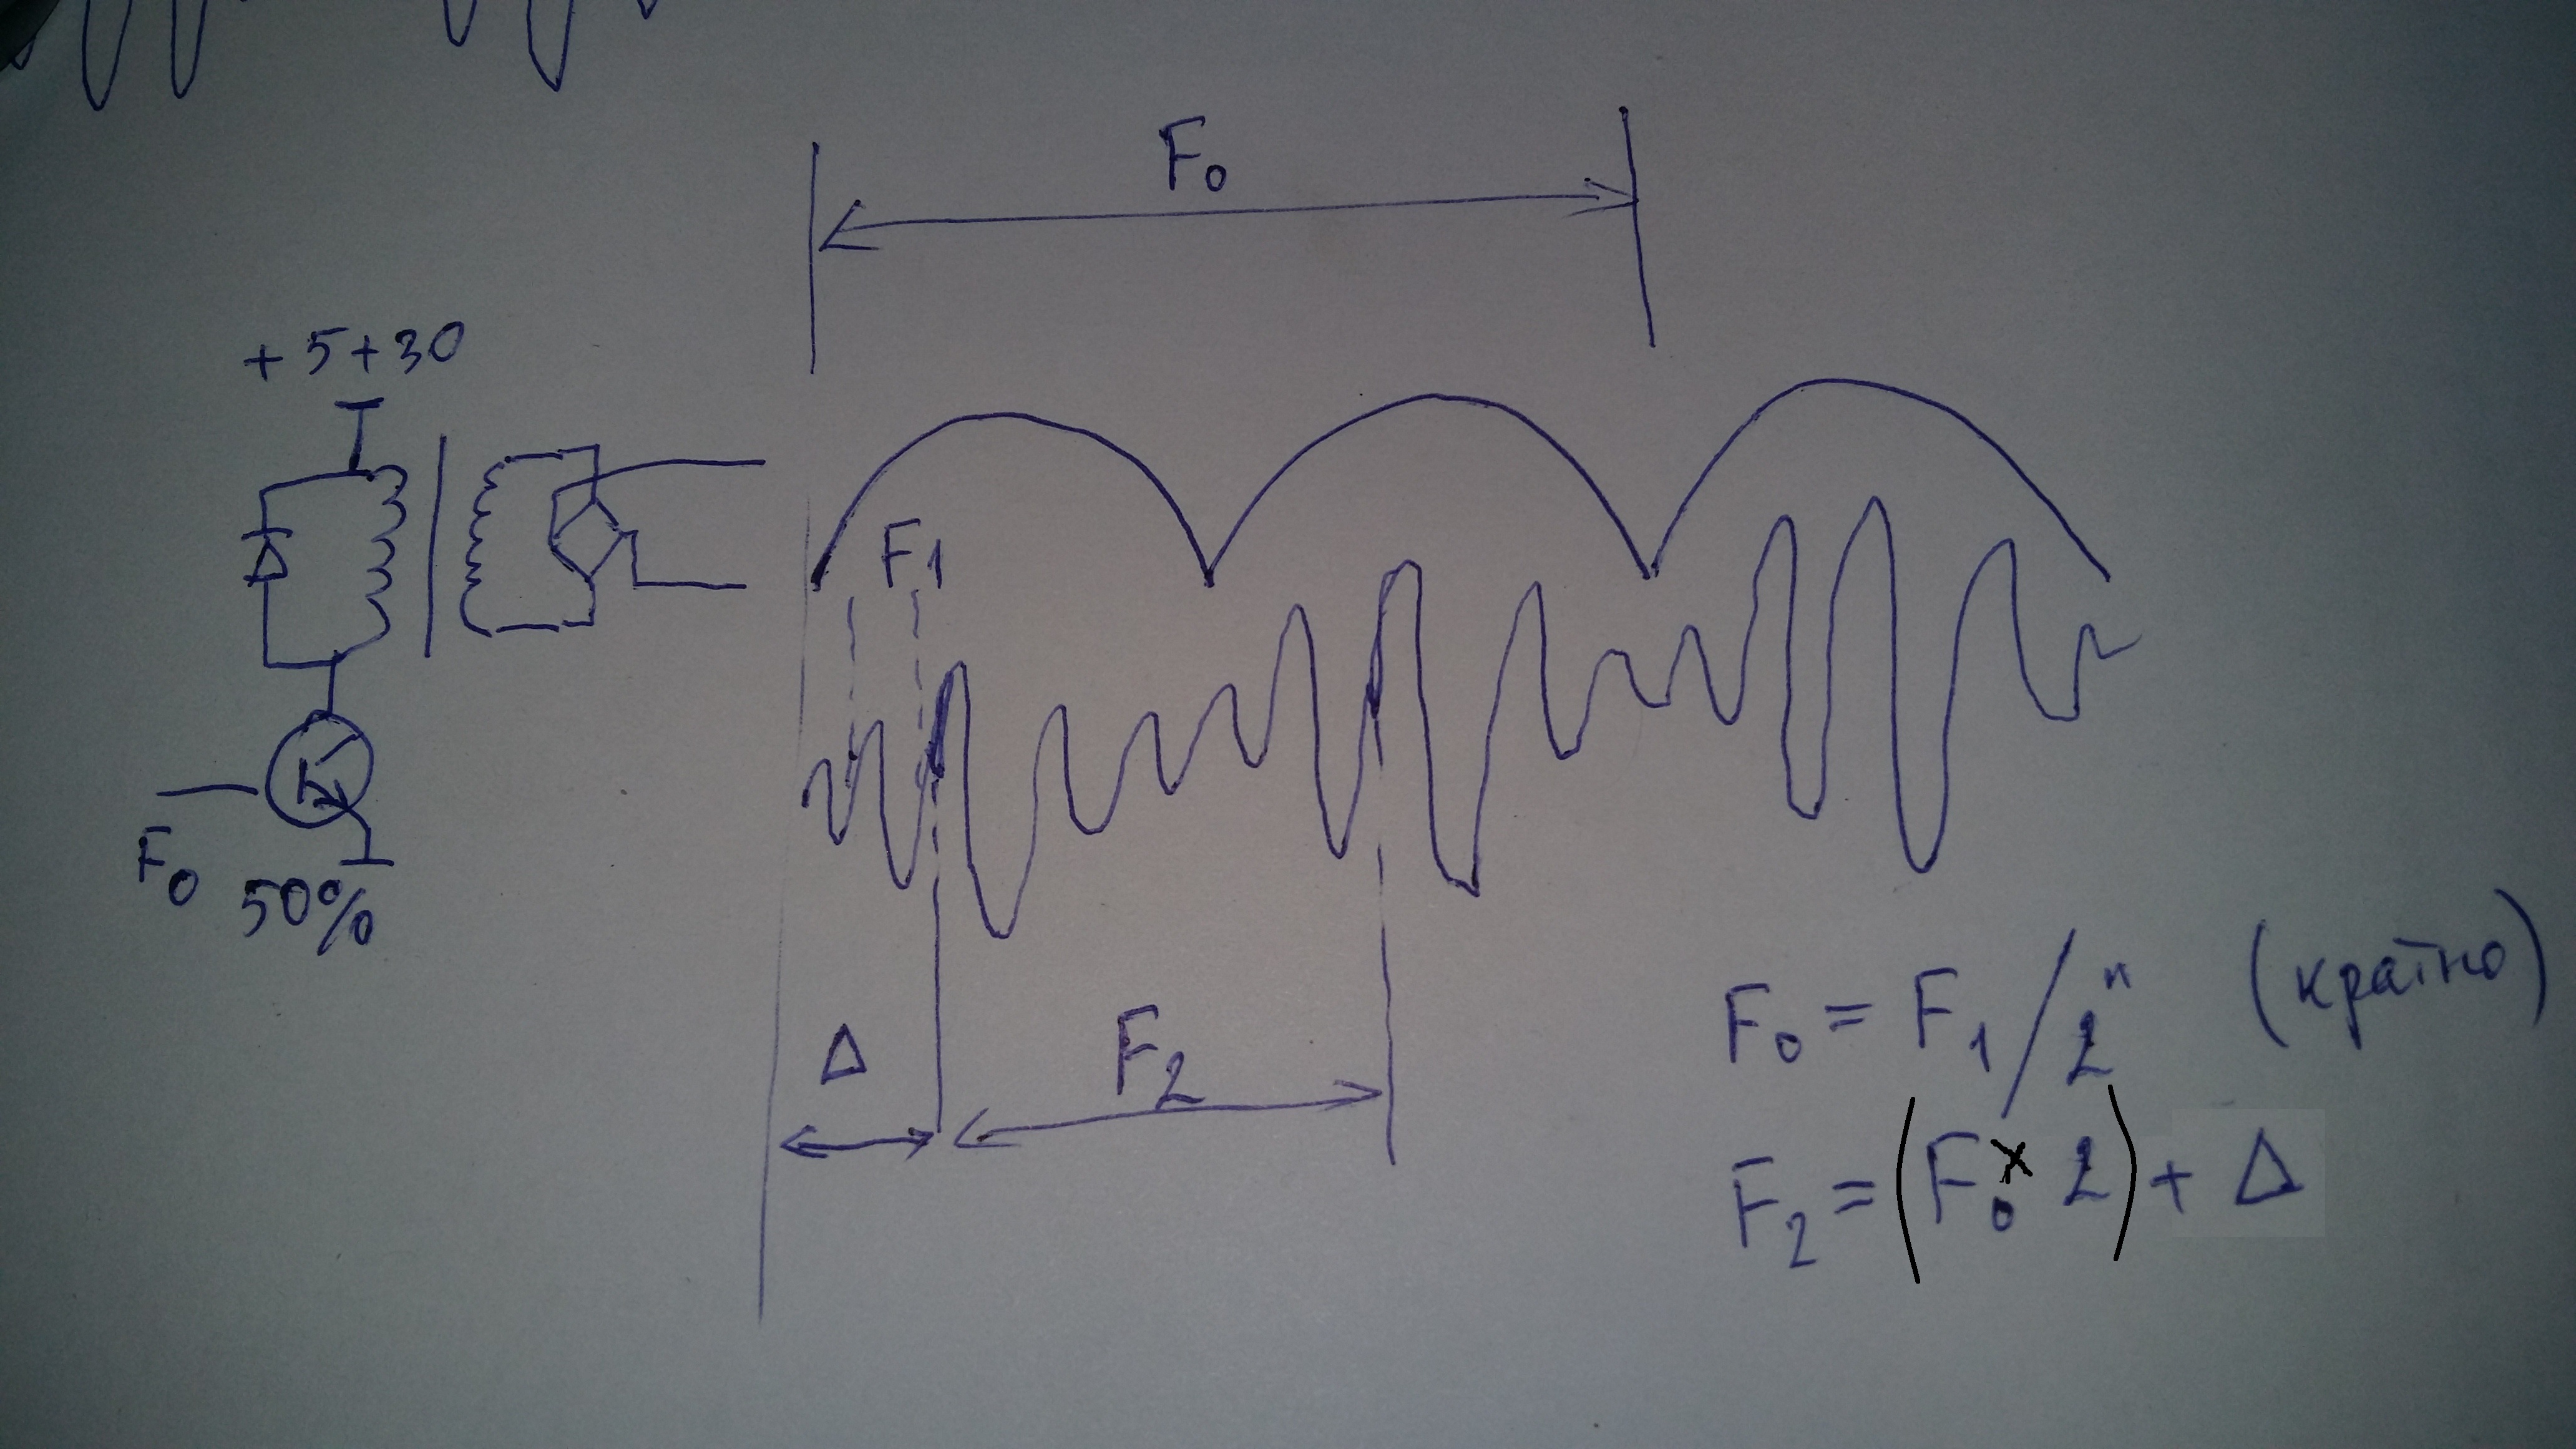 F₀
+5+30
F1
F₀ 50%
Δ
F₂
F₀ = F₁/2ⁿ (кратно)
F₂ = (F₀ x 2) + Δ